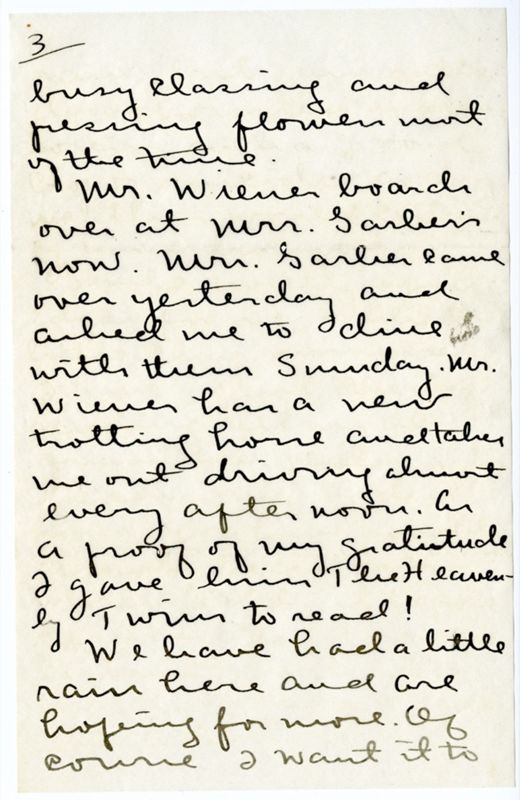 3
busy classing and
pressing flowers most
of the time.
Mr. Wiener boards
over at Mrs. Garber's
now. Mrs. Garber came
over yesterday and
asked me to dine
with them Sunday. Mr.
Wiener has a new
trotting horse and takes
me out driving almost
every afternoon. As
a proof of my gratitude
I gave him The Heaven-
ly Twins to read!
We have had a little
rain here and are
hoping for more. Of
course I want it to